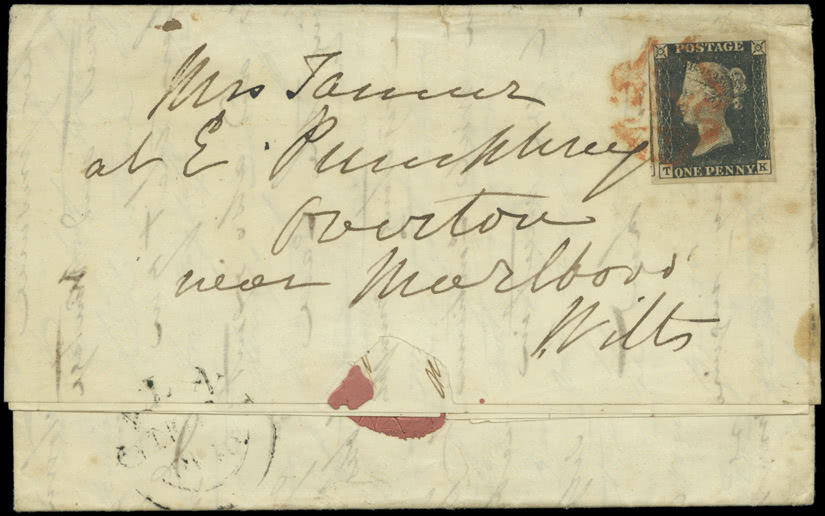 Mrs Tanner
at E. Pumphrey
Overton
near Marlboro'
Wilts
POSTAGE
T K
ONE PENNY